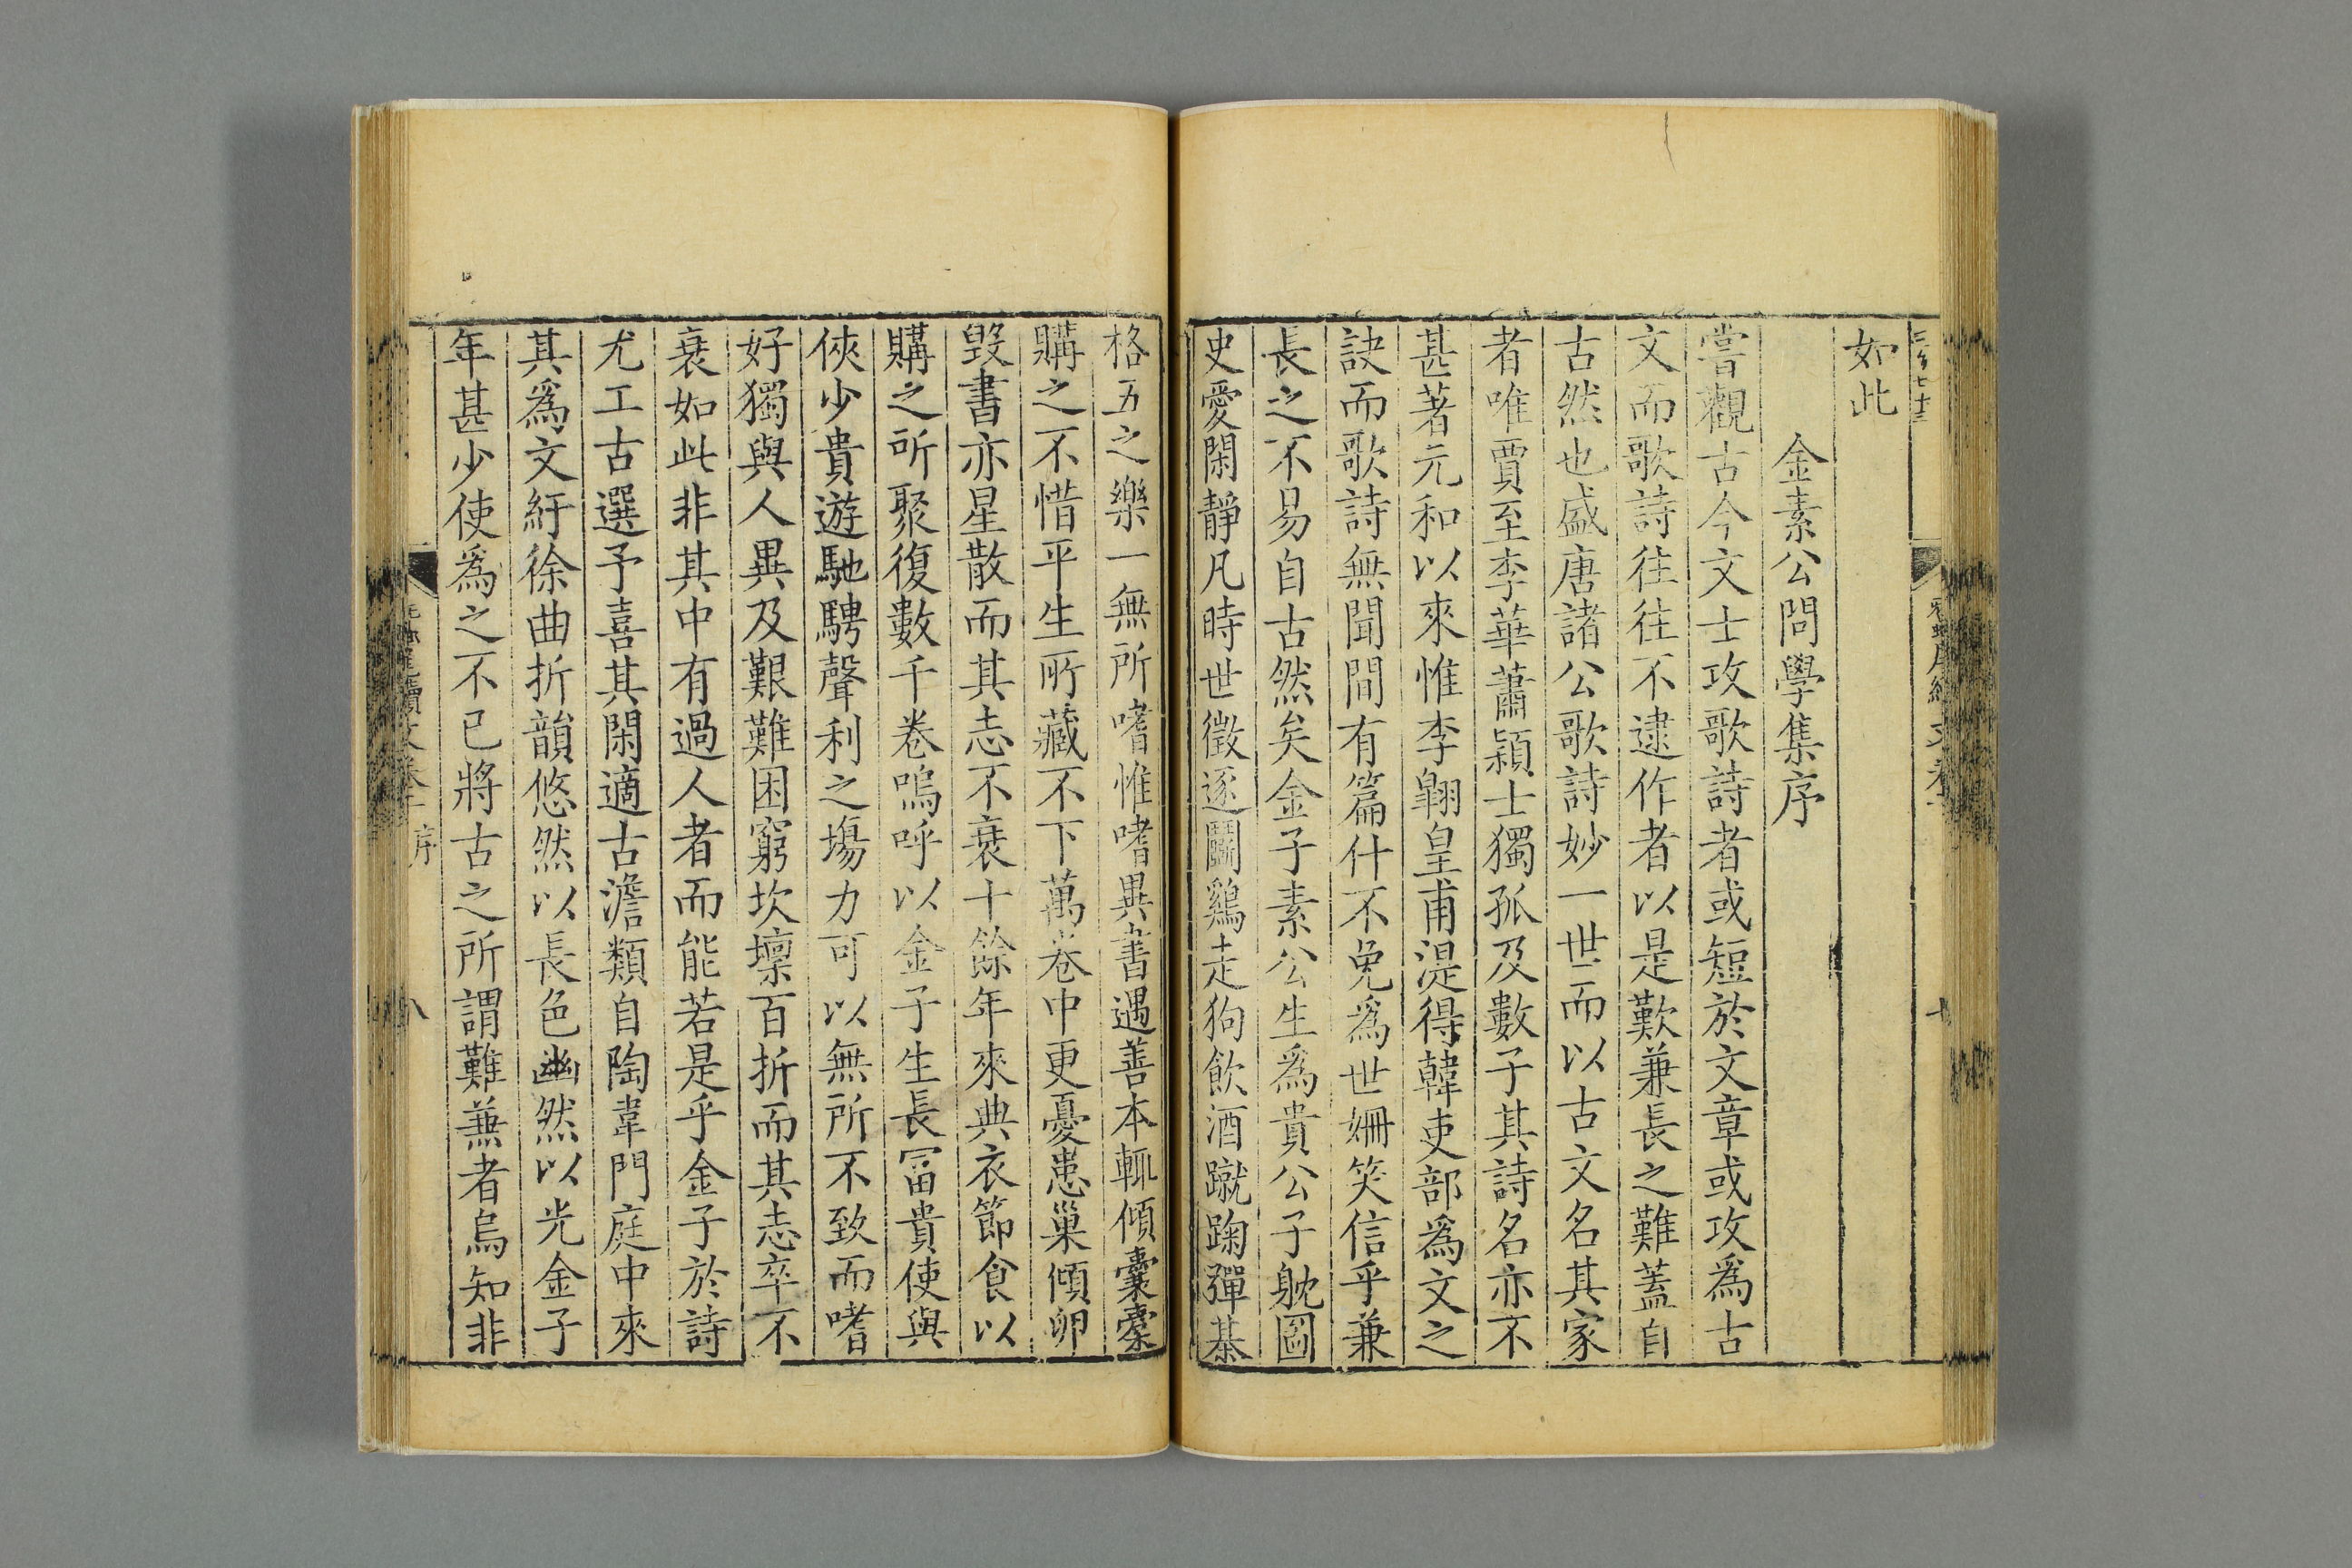 如此
金素公問學集序
嘗觀古今文士攻歌詩者或短於文章或攻爲古
文而歌詩往往不逮作者以是歎兼長之難蓋自
古然也盛唐諸公歌詩妙一世而以古文名其家
者唯賈至李華蕭穎士獨孤及數子其詩名亦不
甚著元和以來惟李翺皇甫湜得韓吏部爲文之
訣而歌詩無聞間有篇什不免爲世姍笑信乎兼
長之不易自古然矣金子素公生爲貴公子躭圖
史愛閑靜凡時世徵逐鬬鷄走狗飲酒蹴踘彈棊
格五之樂一無所嗜惟嗜異書遇善本輒傾囊橐
購之不惜平生所藏不下萬卷中更憂患巢傾卵
毀書亦星散而其志不衰十餘年來典衣節食以
購之所聚復數千卷嗚呼以金子生長冨貴使與
俠少貴遊馳騁聲利之塲力可以無所不致而嗜
好獨與人異及艱難困窮坎壈百折而其志卒不
衰如此非其中有過人者而能若是乎金子於詩
尤工古選予喜其閑適古澹類自陶韋門庭中來
其爲文紆徐曲折韻悠然以長色幽然以光金子
年甚少使爲之不已將古之所謂難兼者烏知非
序
八